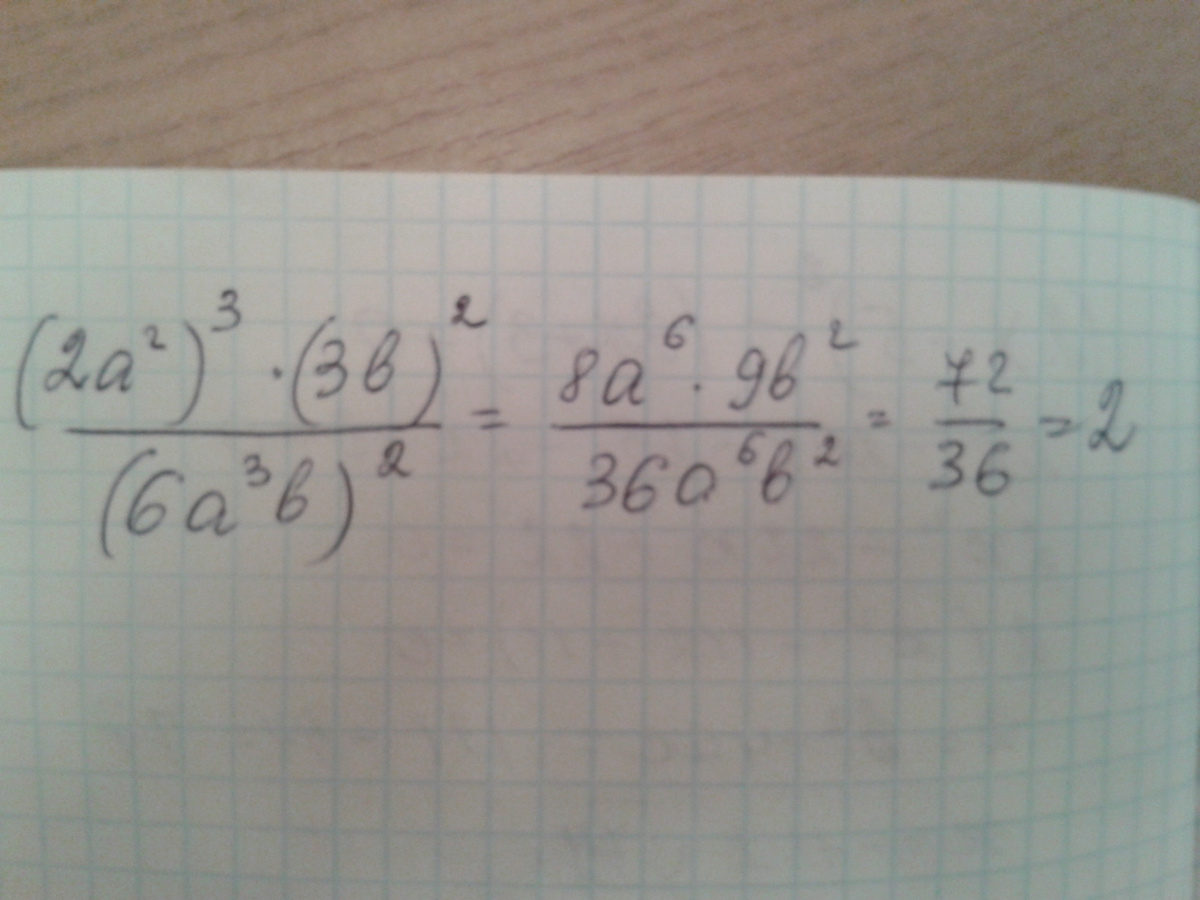 (2a²)³ · (3b)² / (6a³b)² = 8a⁶ · 9b² / 36a⁶b² = 72 / 36 = 2